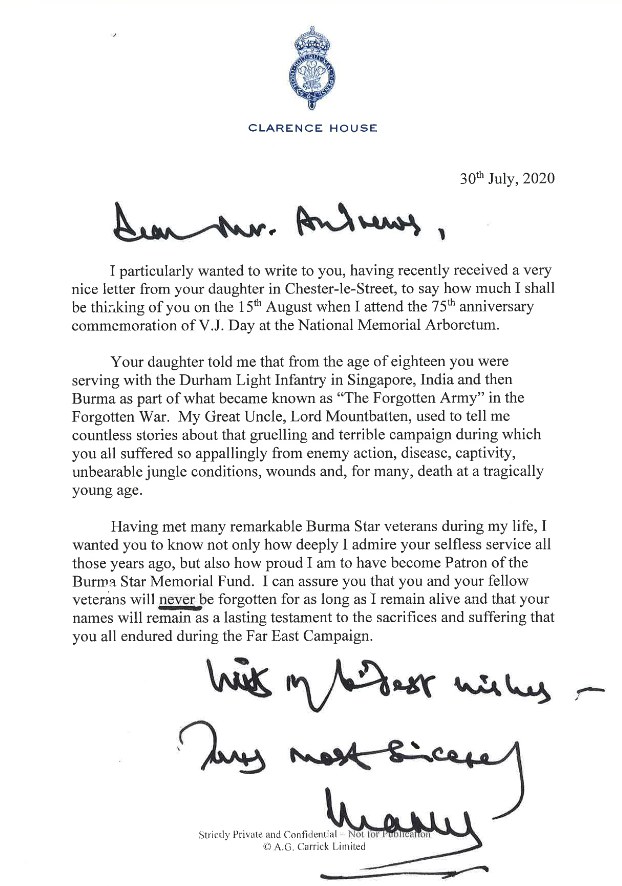 CLARENCE HOUSE
30th July, 2020
Dear Mr. Andrews,
I particularly wanted to write to you, having recently received a very
nice letter from your daughter in Chester-le-Street, to say how much I shall
be thinking of you on the 15th August when I attend the 75th anniversary
commemoration of V.J. Day at the National Memorial Arboretum.
Your daughter told me that from the age of eighteen you were
serving with the Durham Light Infantry in Singapore, India and then
Burma as part of what became known as “The Forgotten Army” in the
Forgotten War. My Great Uncle, Lord Mountbatten, used to tell me
countless stories about that gruelling and terrible campaign during which
you all suffered so appallingly from enemy action, disease, captivity,
unbearable jungle conditions, wounds and, for many, death at a tragically
young age.
Having met many remarkable Burma Star veterans during my life, I
wanted you to know not only how deeply I admire your selfless service all
those years ago, but also how proud I am to have become Patron of the
Burma Star Memorial Fund. I can assure you that you and your fellow
veterans will never be forgotten for as long as I remain alive and that your
names will remain as a lasting testament to the sacrifices and suffering that
you all endured during the Far East Campaign.
With my best wishes –
Yours most sincerely
Strictly Private and Confidential – Not for Publication
© A.G. Carrick Limited